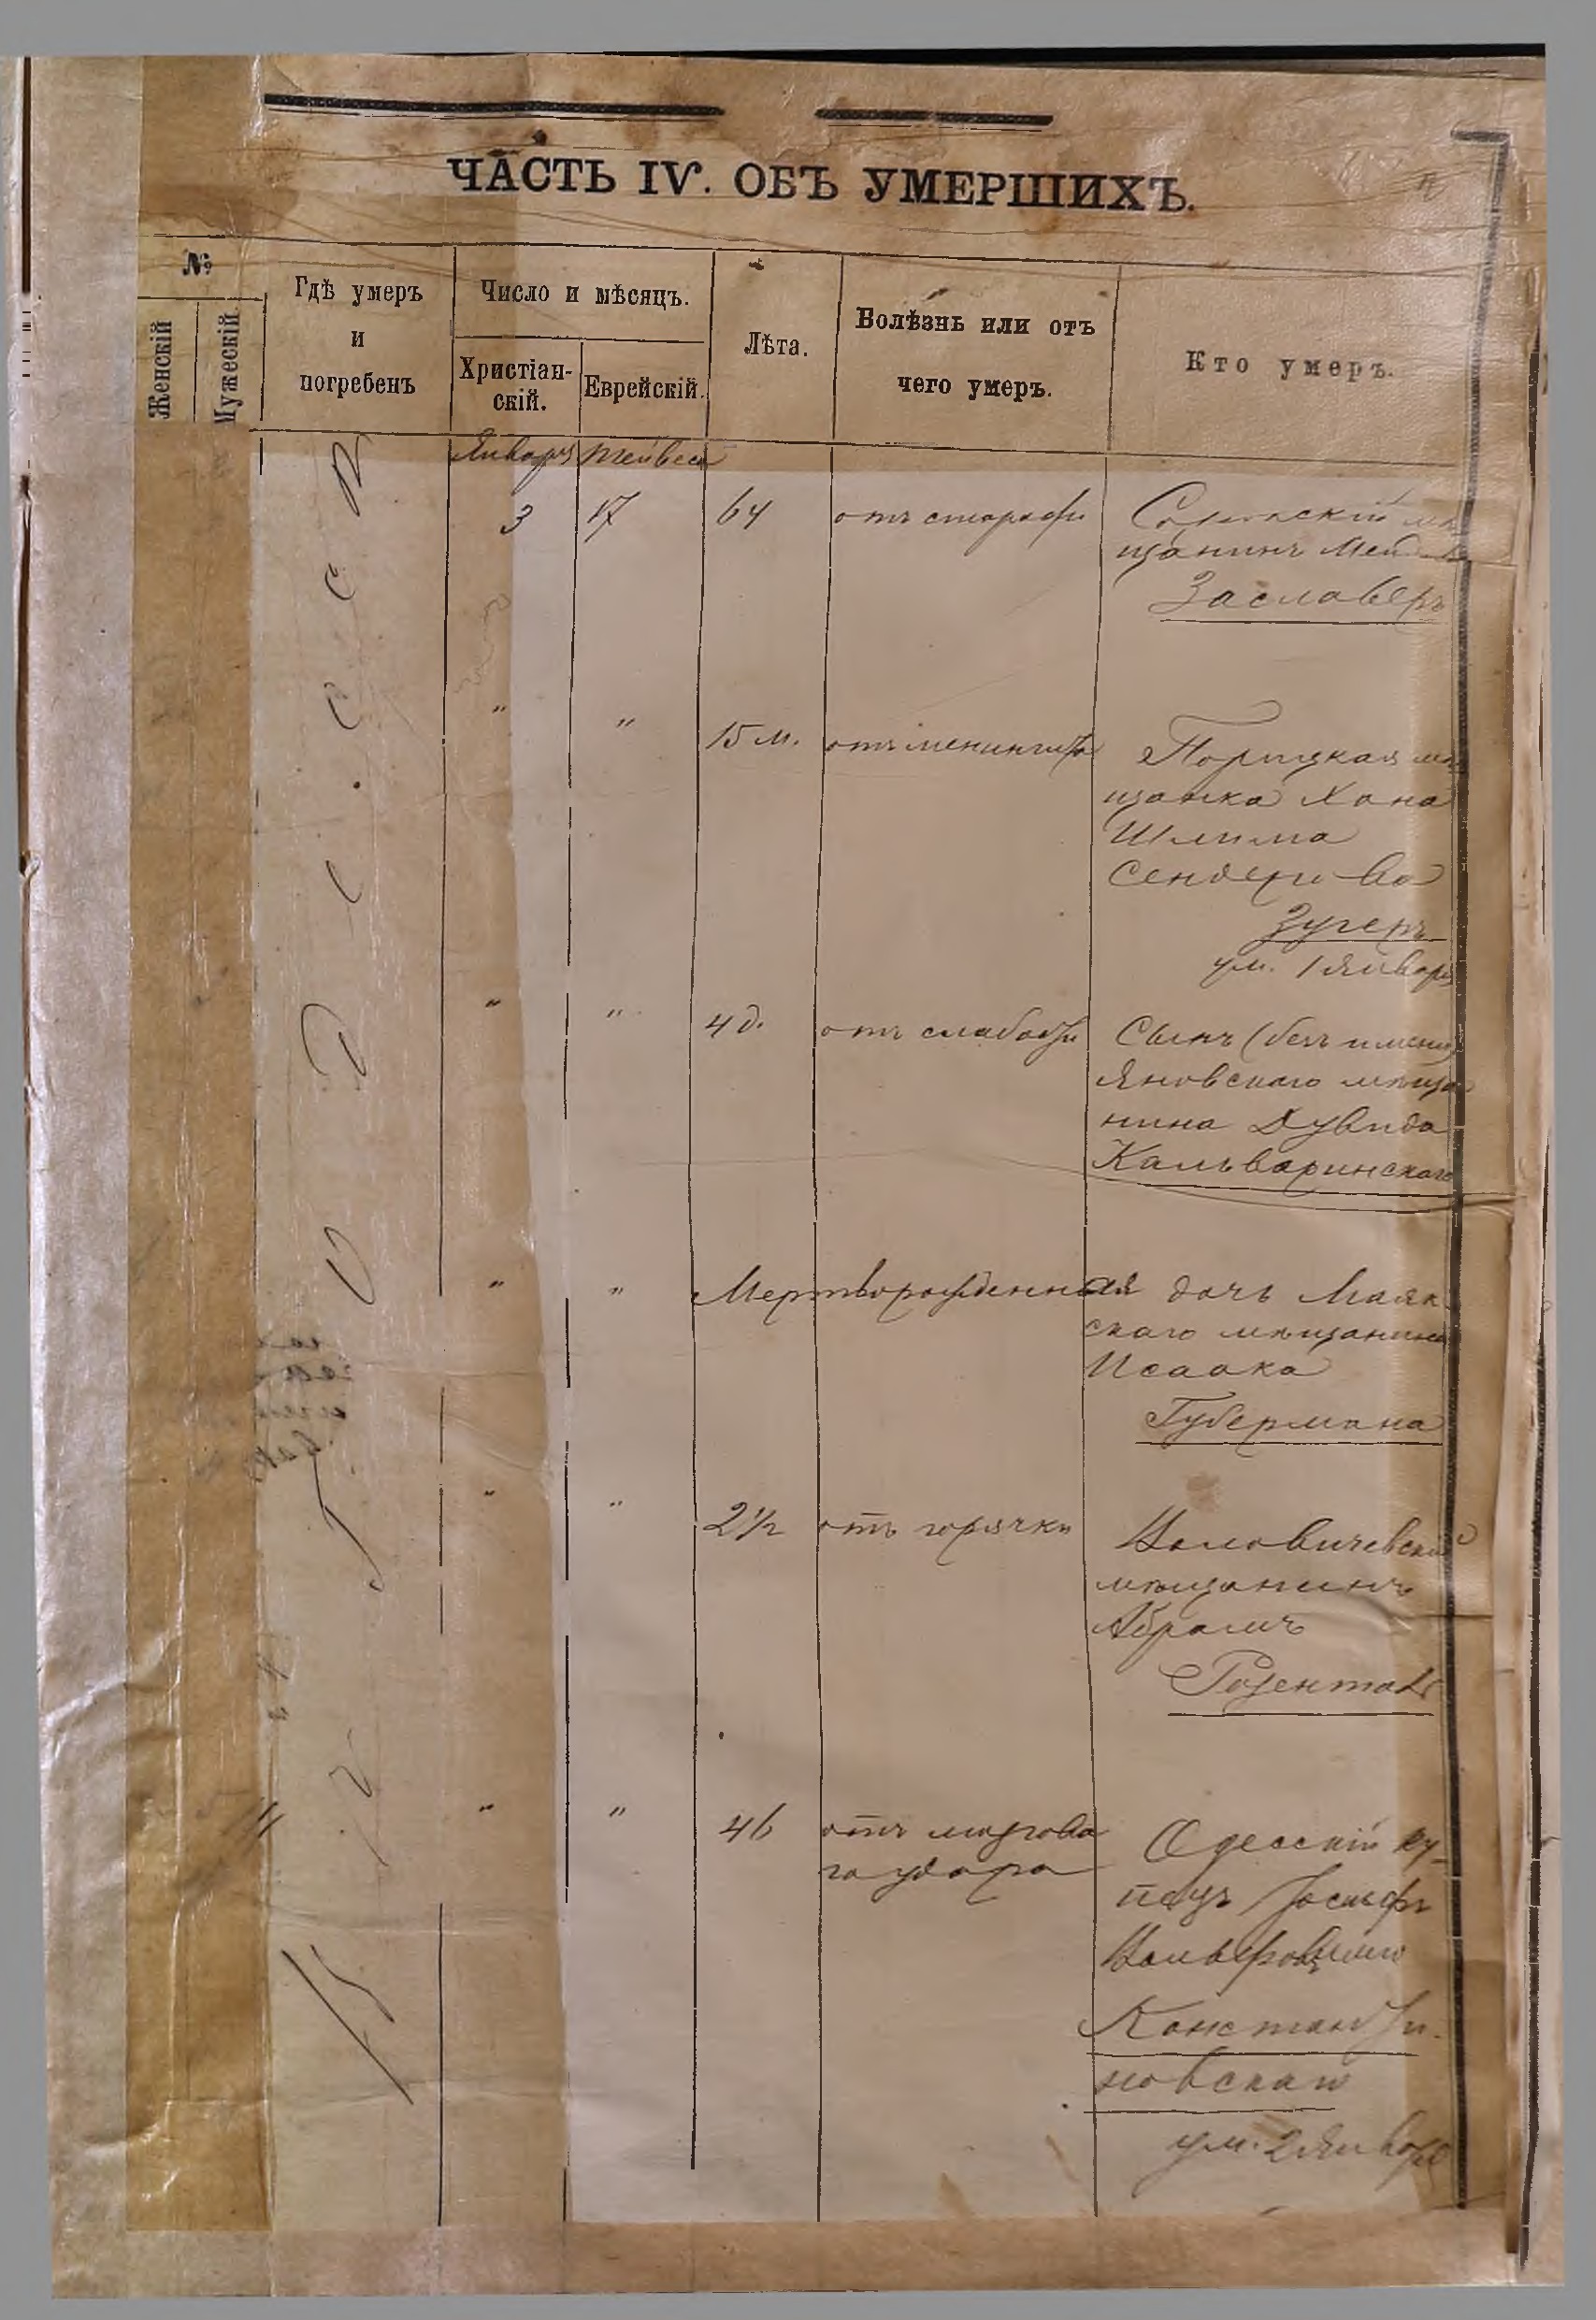 ЧАСТЬ IV. ОБЪ УМЕРШИХЪ.
№
Женскій
Мужескій
Гдѣ умеръ
и
погребенъ
Число и мѣсяцъ.
Христіан-
скій.
Еврейскій.
Лѣта.
Болѣзнь или отъ
чего умеръ.
Кто умеръ.
Января Тейвеса
3 17 64 отъ старости
щанинъ
Заславеръ
" " 15 м. отъ менингита Порицкая мѣ
щанка Хана
Шлима
Сендерова
Зугеръ
ум. 1 Января
" " 4 д. отъ слабости Сынъ (безъ имени)
Яновскаго мѣща
нина Дувида
Кальваринскаго
" " Мертворожденная дочь Маяк
скаго мѣщанина
Исаака
Губермана
" " 2½ отъ горячки
мѣщанинъ
Абрамъ
Розенталь
" " 46 отъ мозгова
го удара
Одесскій ку-
пецъ Іосифъ
Константи-
новскій
ум. 2 Января